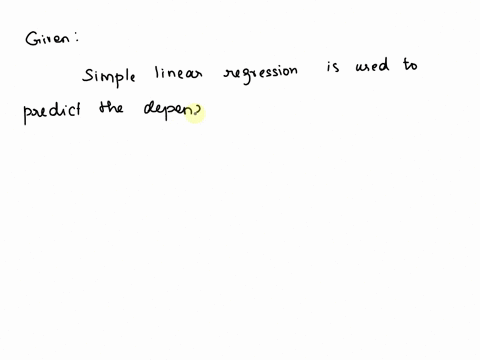 Given:
Simple linear regression is used to
predict the depen